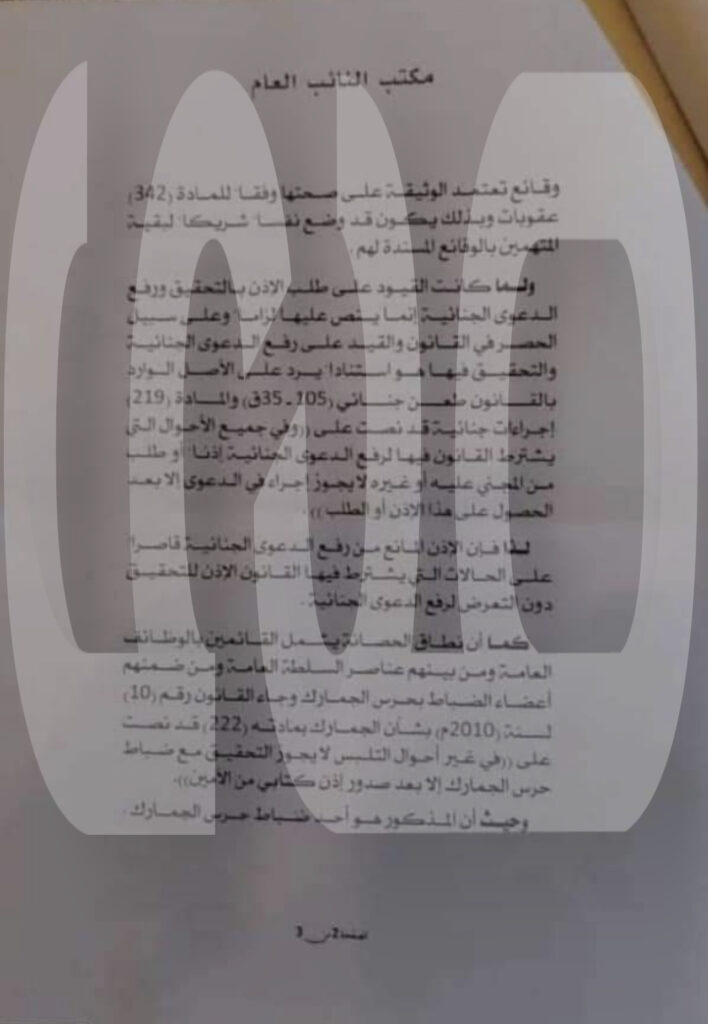 مكتب النائب العام
وقائع تعتمد الوثيقة على صحتها وفقا للمادة (342)
عقوبات وبذلك يكون قد وضع نفسا شريكا لبقية
المتهمين بالوقائع المسندة لهم .
ولما كانت القيود على طلب الإذن بالتحقيق ورفع
الدعوى الجنائية إنما ينص عليها لزاما وعلى سبيل
الحصر في القانون والقيد على رفع الدعوى الجنائية
والتحقيق فيها هو استنادا يرد على الأصل الوارد
بالقانون طعن جنائي (105 ـ 35ق) والمادة (219)
إجراءات جنائية قد نصت على ((وفي جميع الأحوال التي
يشترط القانون فيها لرفع الدعوى الجنائية إذنا أو طلب
من المجني عليه أو غيره لا يجوز إجراء في الدعوى إلا بعد
الحصول على هذا الإذن أو الطلب)) .
لذا فإن الإذن المانع من رفع الدعوى الجنائية قاصرا
على الحالات التي يشترط فيها القانون الإذن للتحقيق
دون التعرض لرفع الدعوى الجنائية .
كما أن نطاق الحصانة يشمل القائمين بالوظائف
العامة ومن بينهم عناصر السلطة العامة ومن ضمنهم
أعضاء الضباط بحرس الجمارك وجاء القانون رقم (10)
لسنة (2010م) بشأن الجمارك بمادته (222) قد نصت
على ((في غير أحوال التلبس لا يجوز التحقيق مع ضباط
حرس الجمارك إلا بعد صدور إذن كتابي من الأمين)).
وحيث أن المذكور هو أحد ضباط حرس الجمارك .
الصفحة 2 من 3